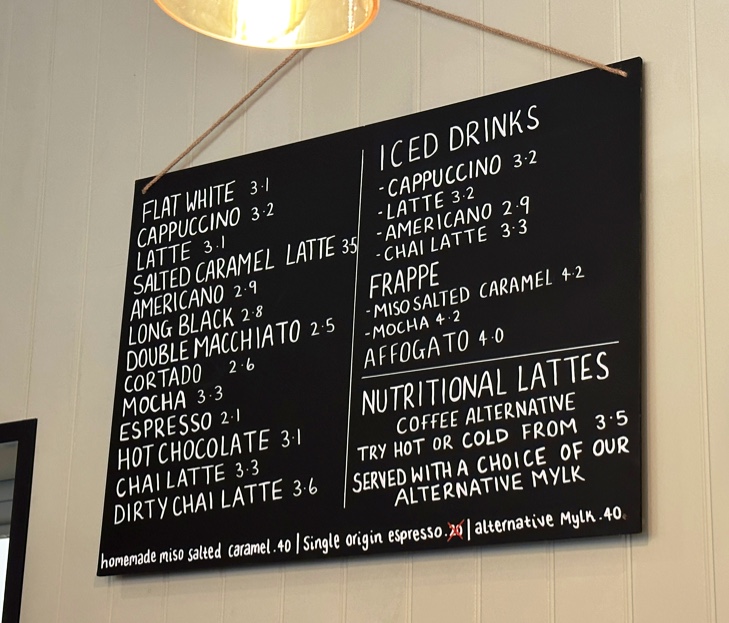 FLAT WHITE 3·1
CAPPUCCINO 3·2
LATTE 3·1
SALTED CARAMEL LATTE 35
AMERICANO 2·9
LONG BLACK 2·8
DOUBLE MACCHIATO 2·5
CORTADO 2·6
MOCHA 3·3
ESPRESSO 2·1
HOT CHOCOLATE 3·1
CHAI LATTE 3·3
DIRTY CHAI LATTE 3·6
ICED DRINKS
-CAPPUCCINO 3·2
-LATTE 3·2
-AMERICANO 2·9
-CHAI LATTE 3·3
FRAPPE
-MISO SALTED CARAMEL 4·2
-MOCHA 4·2
AFFOGATO 4·0
NUTRITIONAL LATTES
COFFEE ALTERNATIVE
TRY HOT OR COLD FROM 3·5
SERVED WITH A CHOICE OF OUR
ALTERNATIVE MYLK
homemade miso salted caramel .40 | Single origin espresso .20 | alternative Mylk .40